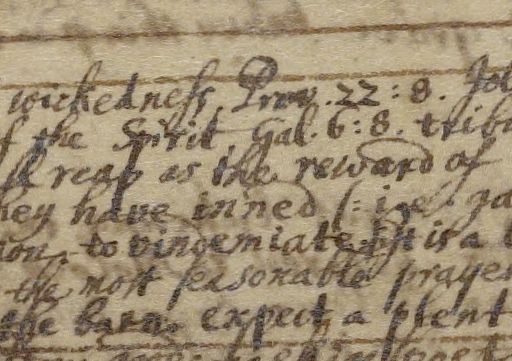 wickedness Prov. 22:8. Job
of the Spirit Gal. 6:8. tribu
reap as the reward of
they have inned (:i.e. ga
to vindemiate it is a
the most seasonable prayer
the barn expect a plent